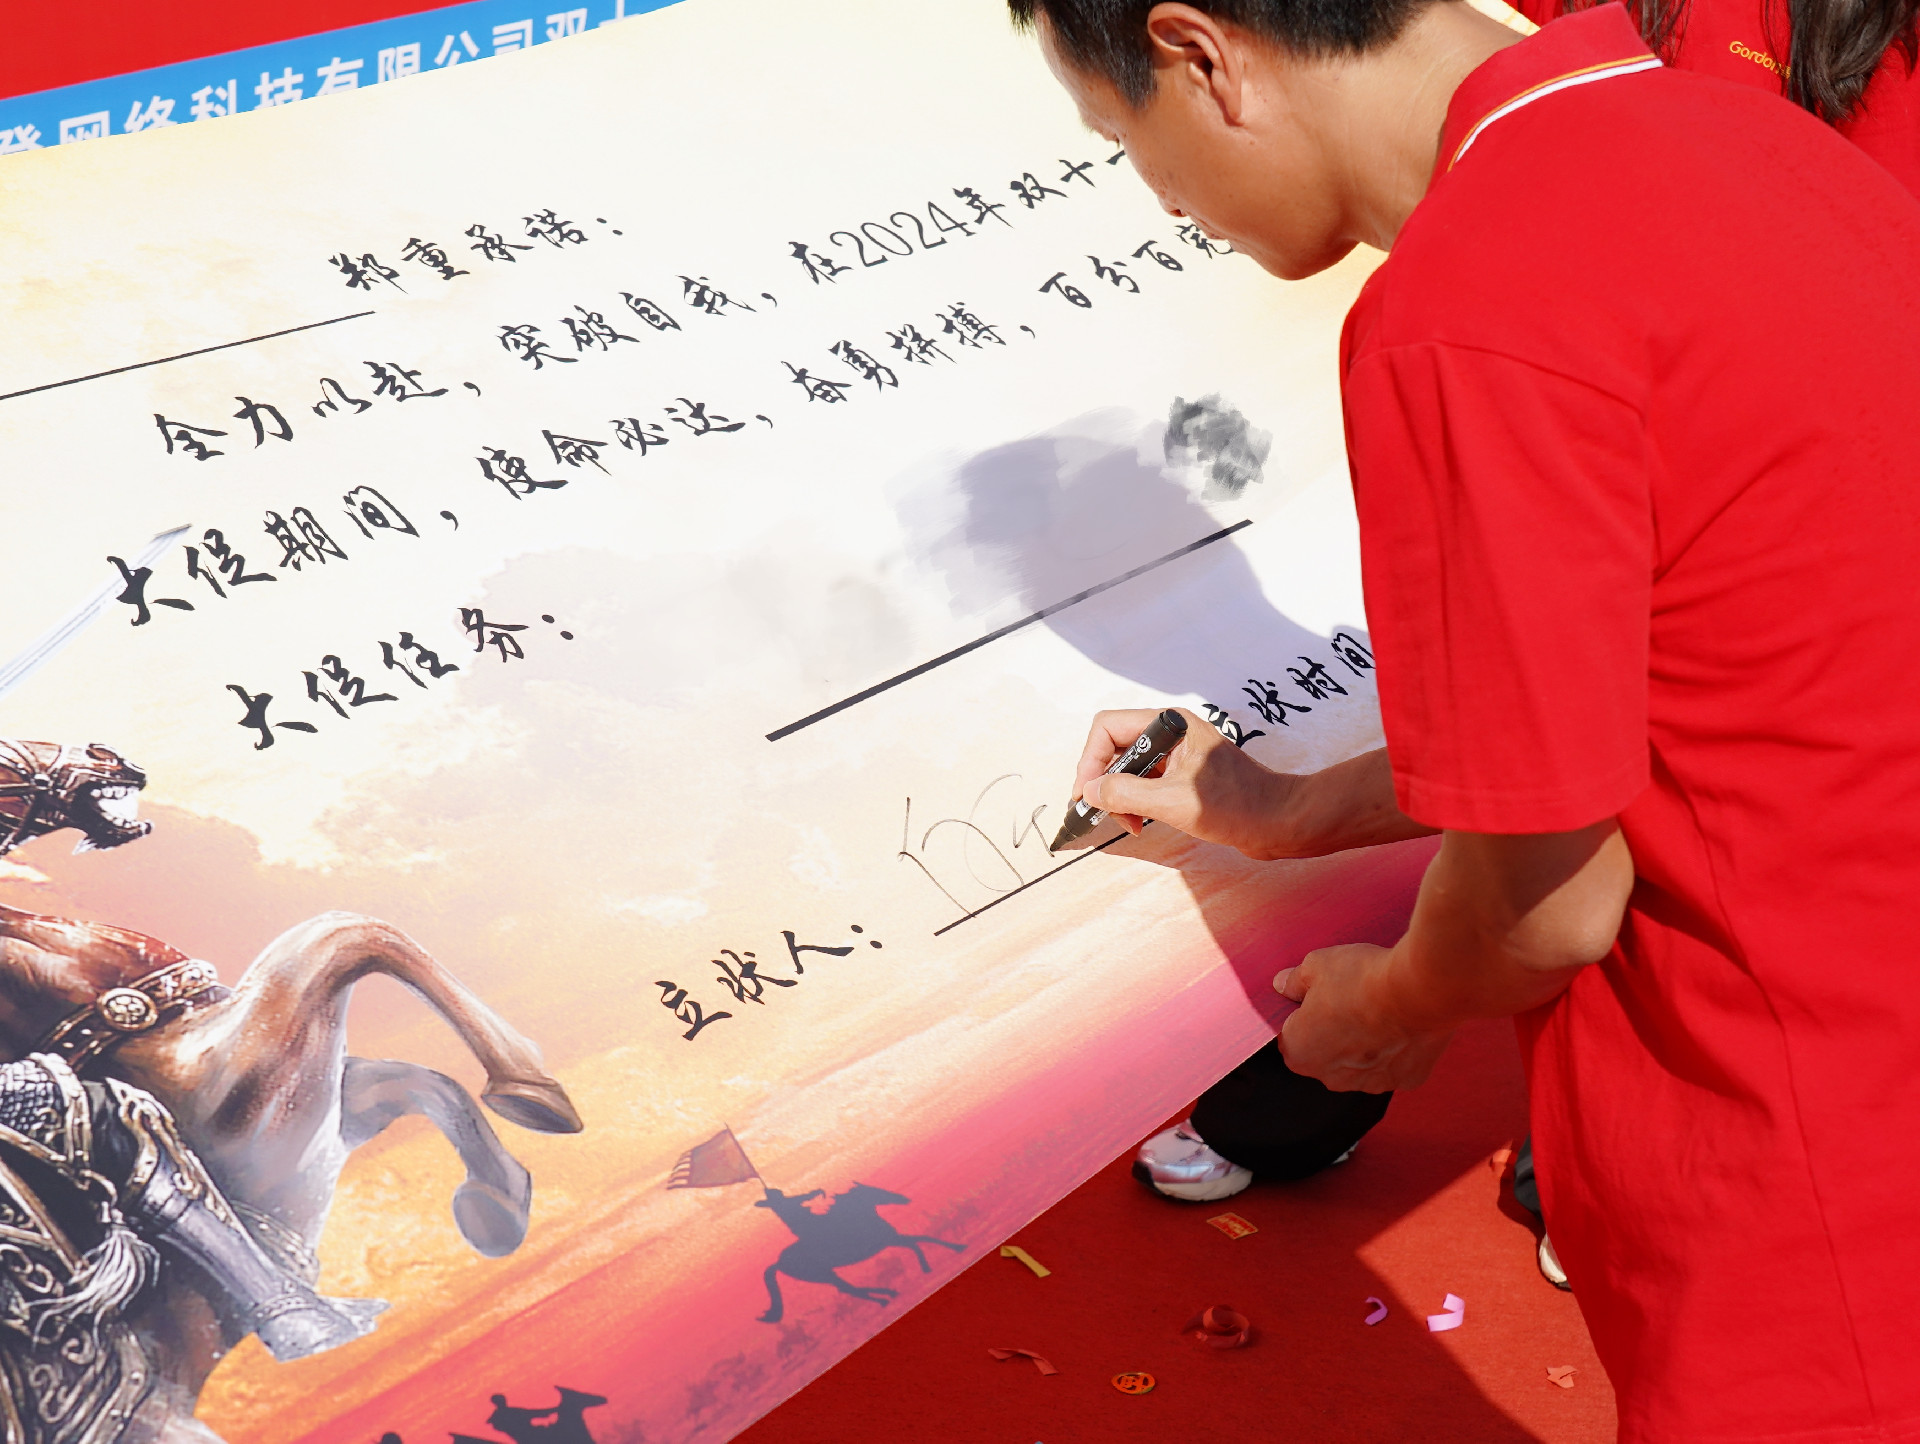 登网络科技有限公司双十
Gordon
郑重承诺：
全力以赴，突破自我，在2024年双十一
大促期间，使命必达，奋勇拼搏，百分百完
大促任务：
立状时间
立状人：